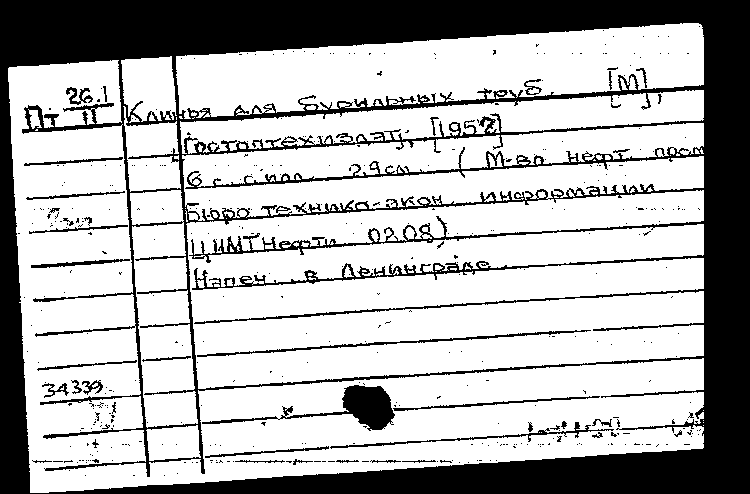 Пт 26.1
II
Клинья для бурильных труб. [М],
Гостоптехиздат, [1957]
6 с. с илл. 29см. (М-во нефт. пром
Бюро техника-экон. информации
ЦИМТНефти 0208)
Напеч. в Ленинграде
34339